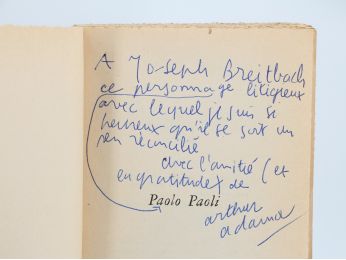 A Joseph Breitbach
ce personnage litigieux
avec lequel je suis si
heureux qu'il se soit un
peu réconcilié
avec l'amitié (et
en gratitude) de
Paolo Paoli
arthur
adamov